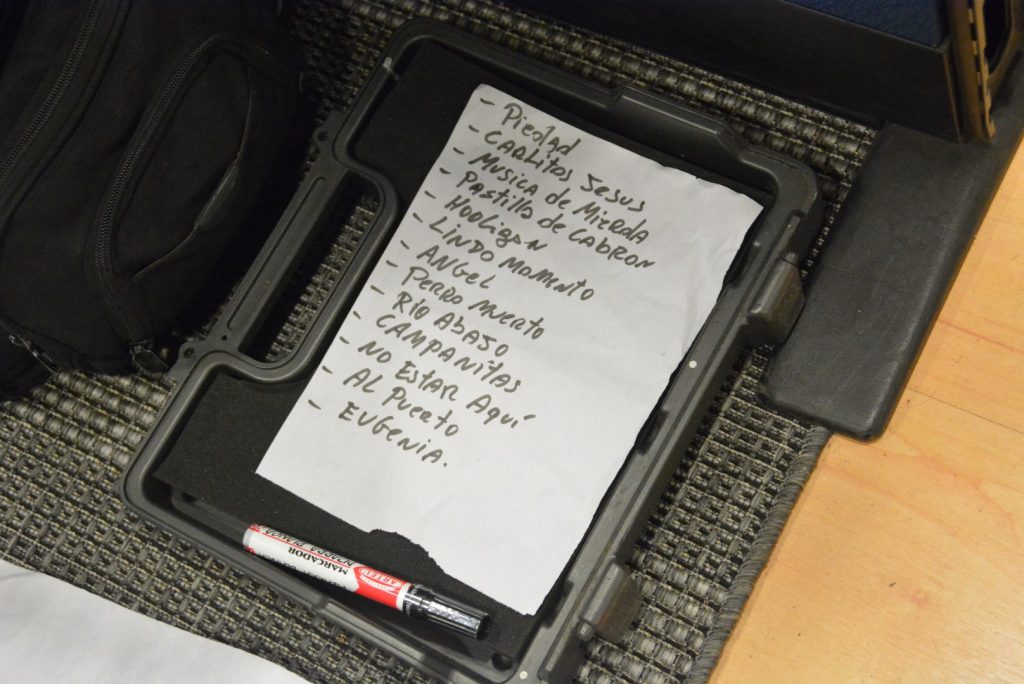 - Piedad
- CARLITOS JESUS
- MUSICA de MIERDA
- PASTILLA de CABRON
- HOOLIGAN
- LINDO MOMENTO
- ANGEL
- PERRO MUERTO
- RÍO ABAJO
- CAMPANITAS
- NO ESTAR AQUÍ
- AL PUERTO
- EUGENIA.
MARCADOR